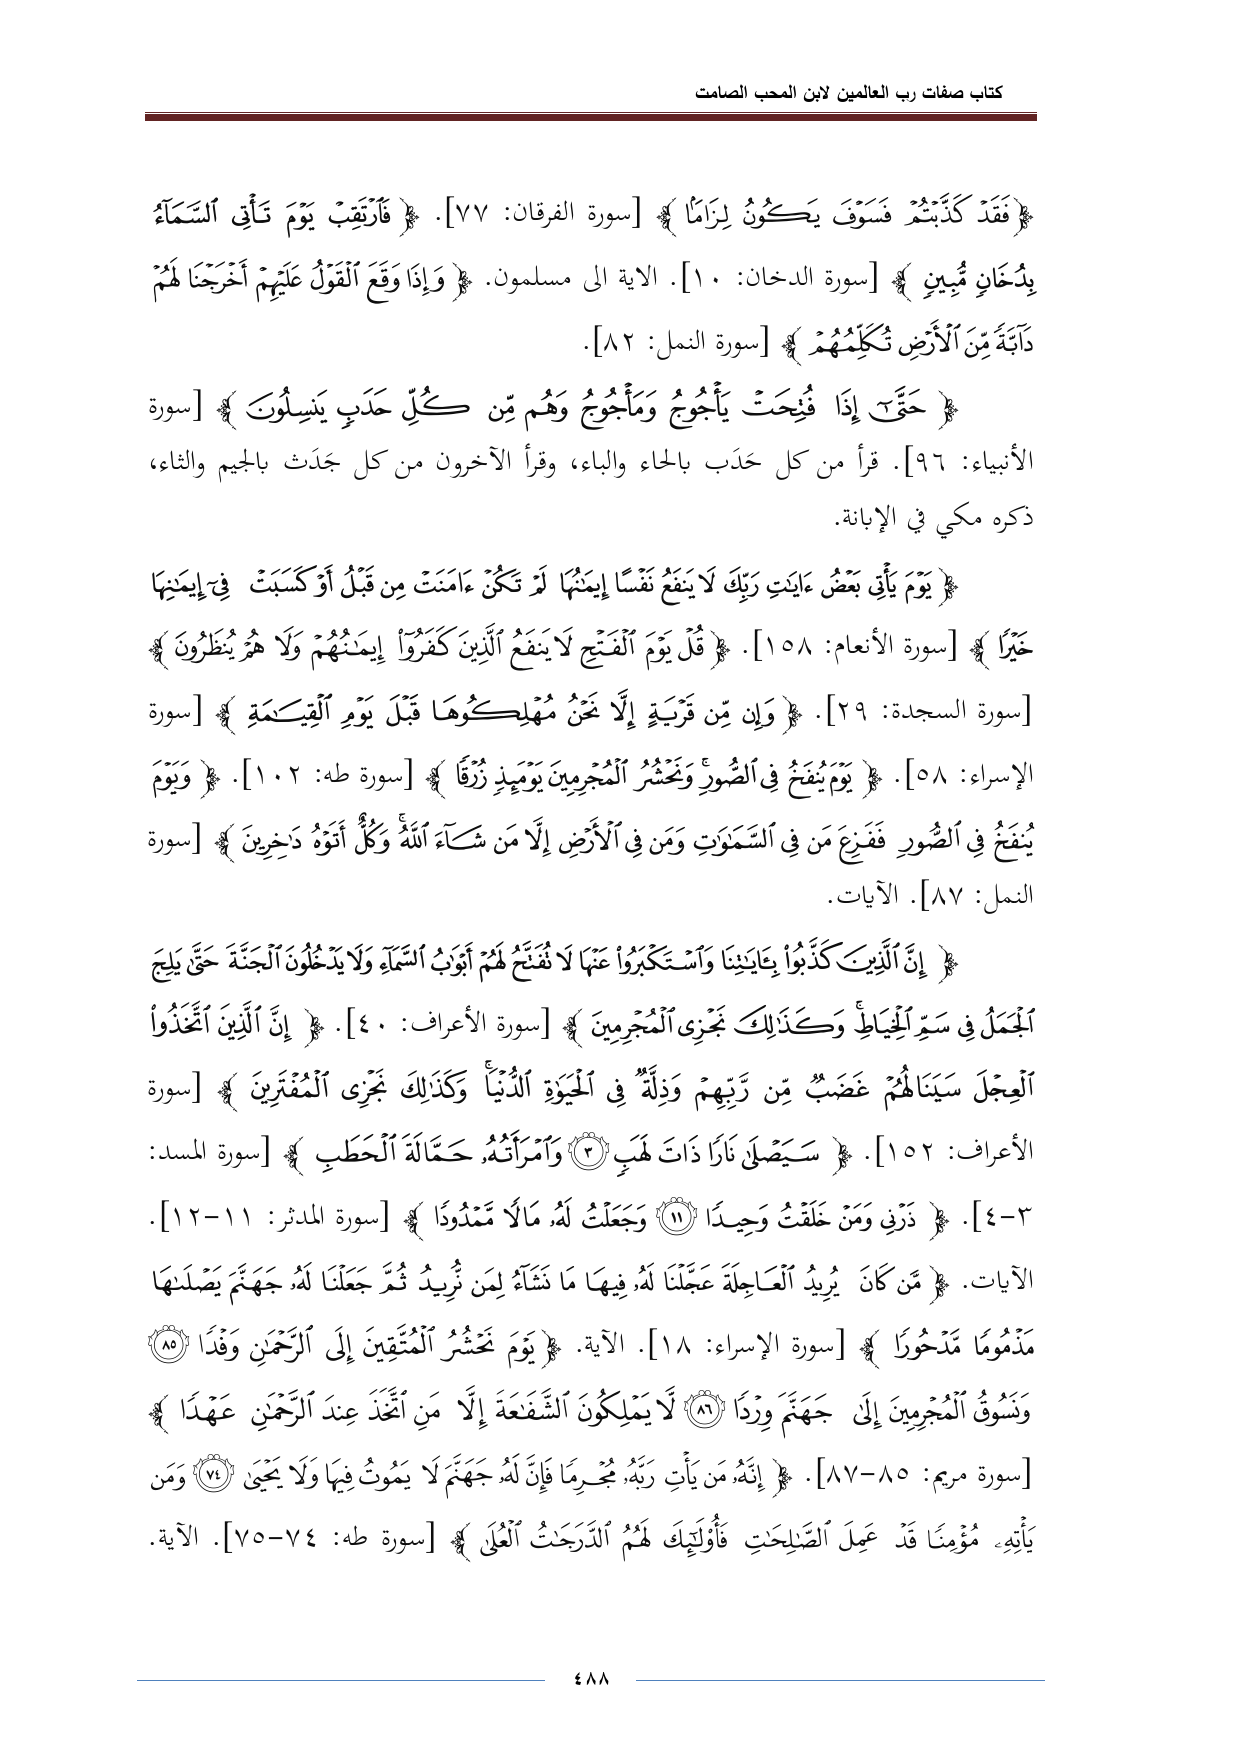 كتاب صفات رب العالمين لابن المحب الصامت
﴿ فَقَدْ كَذَّبْتُمْ فَسَوْفَ يَكُونُ لِزَامًا ﴾ [سورة الفرقان: ٧٧]. ﴿ فَٱرْتَقِبْ يَوْمَ تَأْتِى ٱلسَّمَآءُ
بِدُخَانٍ مُّبِينٍ ﴾ [سورة الدخان: ١٠]. الاية الى مسلمون. ﴿ وَإِذَا وَقَعَ ٱلْقَوْلُ عَلَيْهِمْ أَخْرَجْنَا لَهُمْ
دَآبَّةً مِّنَ ٱلْأَرْضِ تُكَلِّمُهُمْ ﴾ [سورة النمل: ٨٢].
﴿ حَتَّىٰٓ إِذَا فُتِحَتْ يَأْجُوجُ وَمَأْجُوجُ وَهُم مِّن كُلِّ حَدَبٍ يَنسِلُونَ ﴾ [سورة
الأنبياء: ٩٦]. قرأ من كل حَدَب بالحاء والباء، وقرأ الآخرون من كل جَدَث بالجيم والثاء،
ذكره مكي في الإبانة.
﴿ يَوْمَ يَأْتِى بَعْضُ ءَايَٰتِ رَبِّكَ لَا يَنفَعُ نَفْسًا إِيمَٰنُهَا لَمْ تَكُنْ ءَامَنَتْ مِن قَبْلُ أَوْ كَسَبَتْ فِىٓ إِيمَٰنِهَا
خَيْرًا ﴾ [سورة الأنعام: ١٥٨]. ﴿ قُلْ يَوْمَ ٱلْفَتْحِ لَا يَنفَعُ ٱلَّذِينَ كَفَرُوٓا۟ إِيمَٰنُهُمْ وَلَا هُمْ يُنظَرُونَ ﴾
[سورة السجدة: ٢٩]. ﴿ وَإِن مِّن قَرْيَةٍ إِلَّا نَحْنُ مُهْلِكُوهَا قَبْلَ يَوْمِ ٱلْقِيَٰمَةِ ﴾ [سورة
الإسراء: ٥٨]. ﴿ يَوْمَ يُنفَخُ فِى ٱلصُّورِ ۚ وَنَحْشُرُ ٱلْمُجْرِمِينَ يَوْمَئِذٍ زُرْقًا ﴾ [سورة طه: ١٠٢]. ﴿ وَيَوْمَ
يُنفَخُ فِى ٱلصُّورِ فَفَزِعَ مَن فِى ٱلسَّمَٰوَٰتِ وَمَن فِى ٱلْأَرْضِ إِلَّا مَن شَآءَ ٱللَّهُ ۚ وَكُلٌّ أَتَوْهُ دَٰخِرِينَ ﴾ [سورة
النمل: ٨٧]. الآيات.
﴿ إِنَّ ٱلَّذِينَ كَذَّبُوا۟ بِـَٔايَٰتِنَا وَٱسْتَكْبَرُوا۟ عَنْهَا لَا تُفَتَّحُ لَهُمْ أَبْوَٰبُ ٱلسَّمَآءِ وَلَا يَدْخُلُونَ ٱلْجَنَّةَ حَتَّىٰ يَلِجَ
ٱلْجَمَلُ فِى سَمِّ ٱلْخِيَاطِ ۚ وَكَذَٰلِكَ نَجْزِى ٱلْمُجْرِمِينَ ﴾ [سورة الأعراف: ٤٠]. ﴿ إِنَّ ٱلَّذِينَ ٱتَّخَذُوا۟
ٱلْعِجْلَ سَيَنَالُهُمْ غَضَبٌ مِّن رَّبِّهِمْ وَذِلَّةٌ فِى ٱلْحَيَوٰةِ ٱلدُّنْيَا ۚ وَكَذَٰلِكَ نَجْزِى ٱلْمُفْتَرِينَ ﴾ [سورة
الأعراف: ١٥٢]. ﴿ سَيَصْلَىٰ نَارًا ذَاتَ لَهَبٍ ٣ وَٱمْرَأَتُهُۥ حَمَّالَةَ ٱلْحَطَبِ ﴾ [سورة المسد:
٣-٤]. ﴿ ذَرْنِى وَمَنْ خَلَقْتُ وَحِيدًا ١١ وَجَعَلْتُ لَهُۥ مَالًا مَّمْدُودًا ﴾ [سورة المدثر: ١١-١٢].
الآيات. ﴿ مَّن كَانَ يُرِيدُ ٱلْعَاجِلَةَ عَجَّلْنَا لَهُۥ فِيهَا مَا نَشَآءُ لِمَن نُّرِيدُ ثُمَّ جَعَلْنَا لَهُۥ جَهَنَّمَ يَصْلَىٰهَا
مَذْمُومًا مَّدْحُورًا ﴾ [سورة الإسراء: ١٨]. الآية. ﴿ يَوْمَ نَحْشُرُ ٱلْمُتَّقِينَ إِلَى ٱلرَّحْمَٰنِ وَفْدًا ٨٥
وَنَسُوقُ ٱلْمُجْرِمِينَ إِلَىٰ جَهَنَّمَ وِرْدًا ٨٦ لَّا يَمْلِكُونَ ٱلشَّفَٰعَةَ إِلَّا مَنِ ٱتَّخَذَ عِندَ ٱلرَّحْمَٰنِ عَهْدًا ﴾
[سورة مريم: ٨٥-٨٧]. ﴿ إِنَّهُۥ مَن يَأْتِ رَبَّهُۥ مُجْرِمًا فَإِنَّ لَهُۥ جَهَنَّمَ لَا يَمُوتُ فِيهَا وَلَا يَحْيَىٰ ٧٤ وَمَن
يَأْتِهِۦ مُؤْمِنًا قَدْ عَمِلَ ٱلصَّٰلِحَٰتِ فَأُو۟لَٰٓئِكَ لَهُمُ ٱلدَّرَجَٰتُ ٱلْعُلَىٰ ﴾ [سورة طه: ٧٤-٧٥]. الآية.
٤٨٨